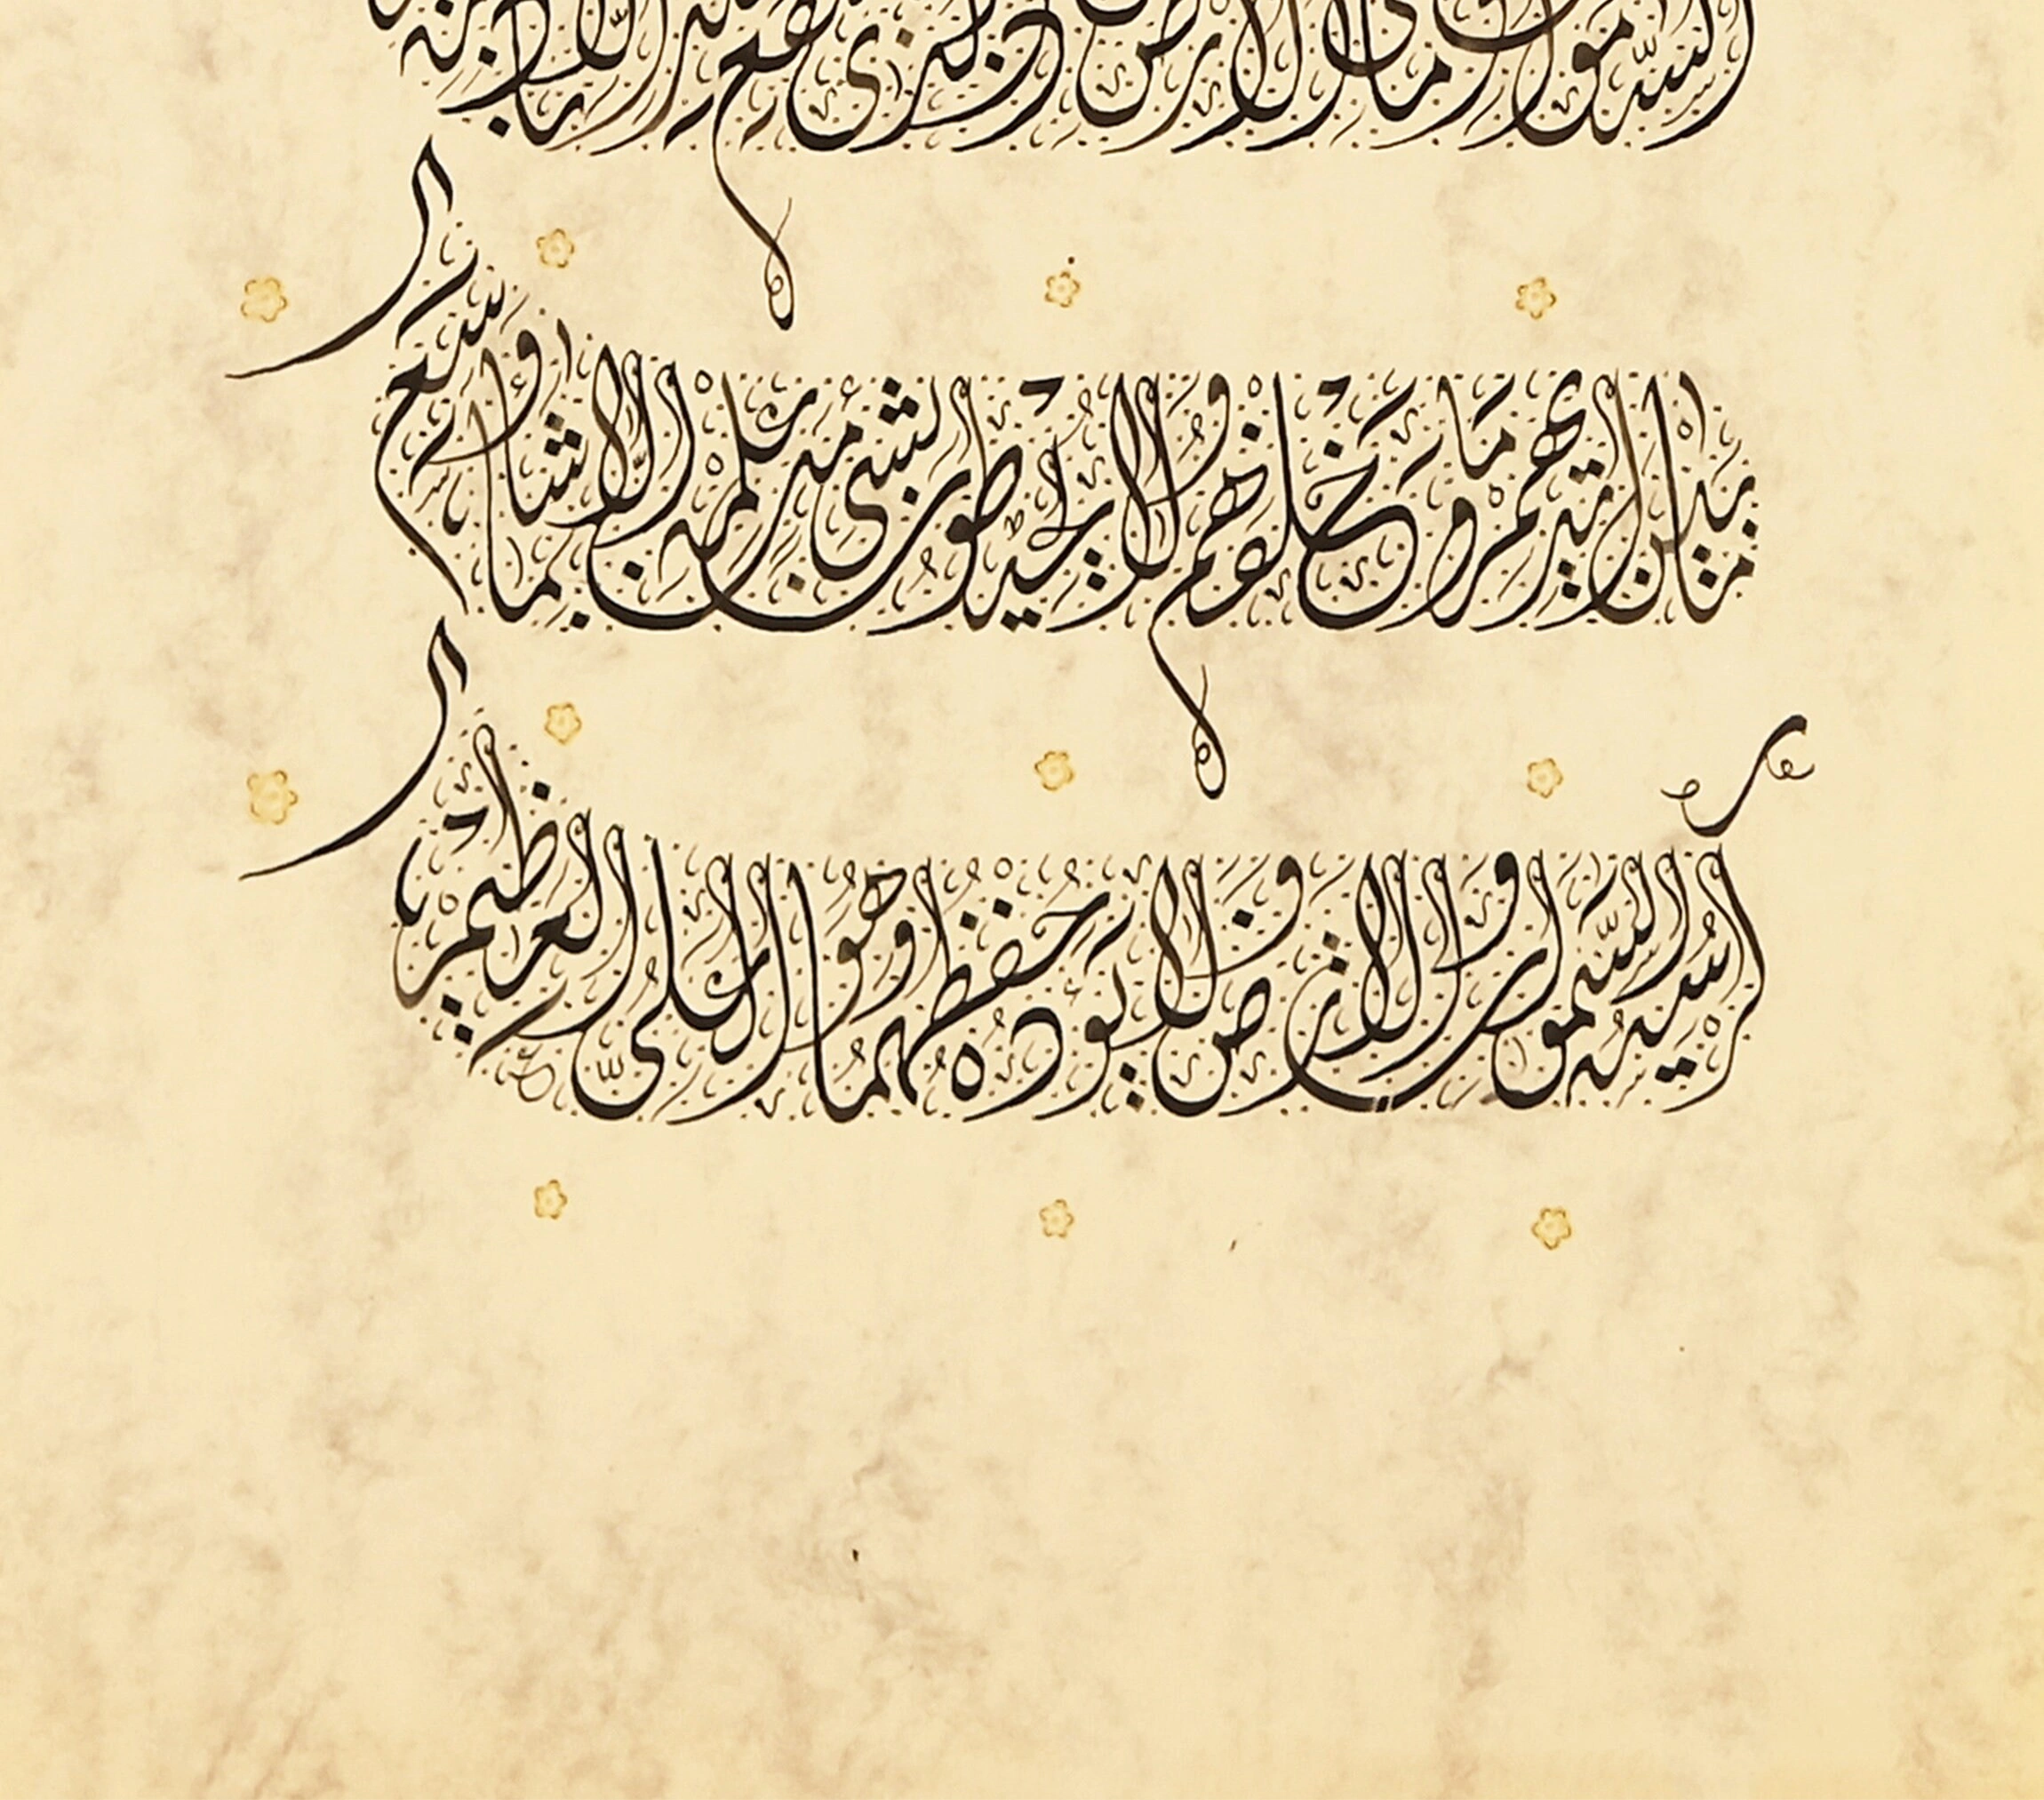 السَّمٰوَاتِ وَمَا فِي الْاَرْضِ مَنْ ذَا الَّذِي يَشْفَعُ عِنْدَهُ اِلَّا بِاِذْنِهِ
مَا بَيْنَ اَيْدِيهِمْ وَمَا خَلْفَهُمْ وَلَا يُحِيطُونَ بِشَيْءٍ مِنْ عِلْمِهِ اِلَّا بِمَا شَاءَ وَسِعَ
كُرْسِيُّهُ السَّمٰوَاتِ وَالْاَرْضَ وَلَا يَؤُدُهُ حِفْظُهُمَا وَهُوَ الْعَلِيُّ الْعَظِيمُ